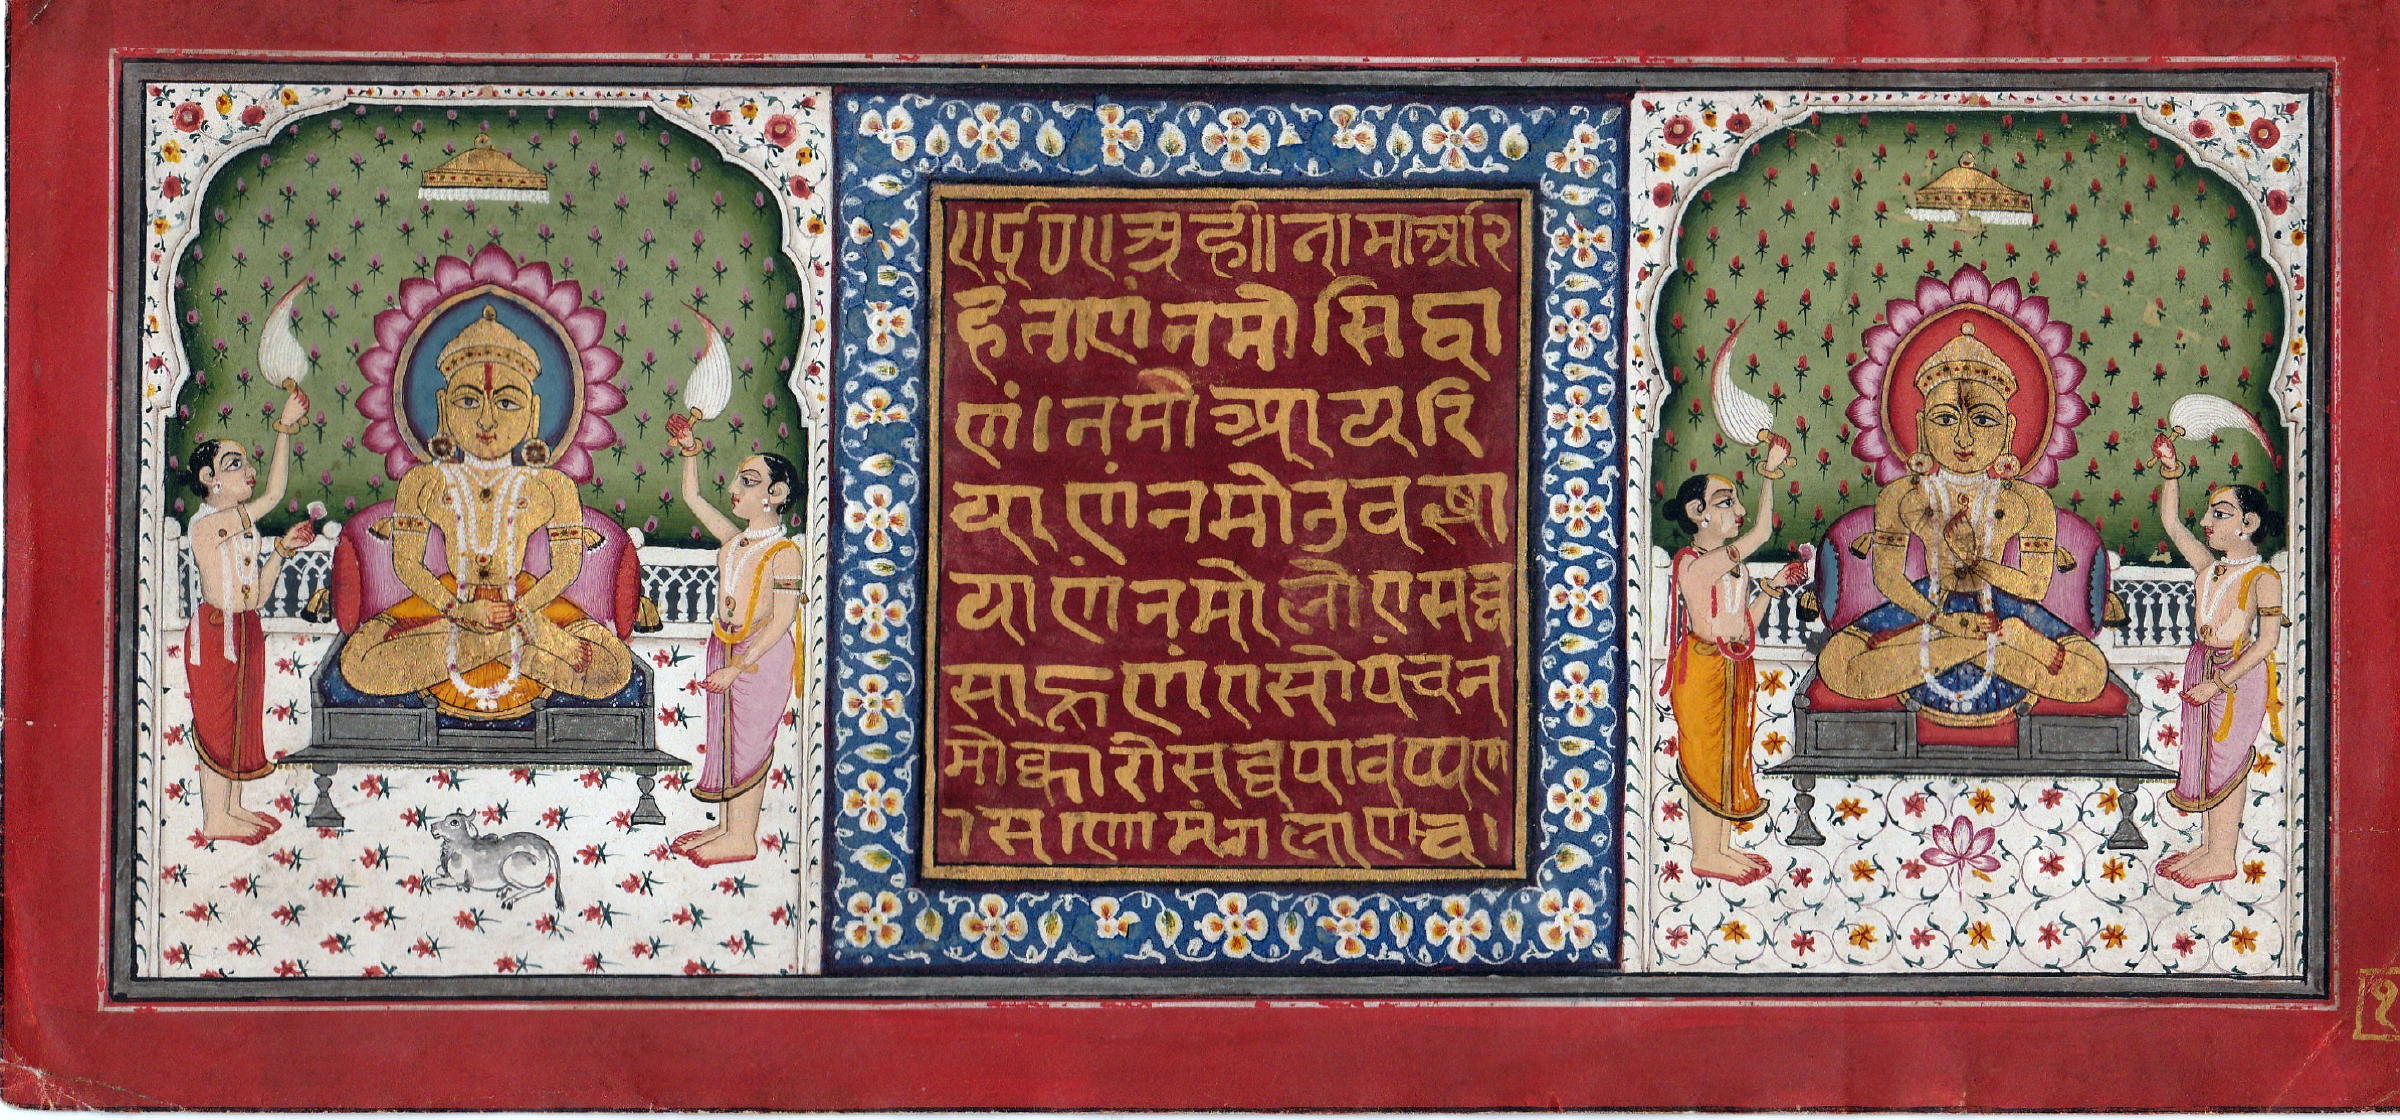 ए र्द ण ए अर्ह्री॥ नामाअरि
हंताणं नमो सिद्धा
णं। नमो आयरि
याणं नमो उवझा
याणं नमो लोए सव्व
साहूणं एसो पंचन
मोक्कारो सव्व पावप्पण
ासाणा मंगलाणं च।
१